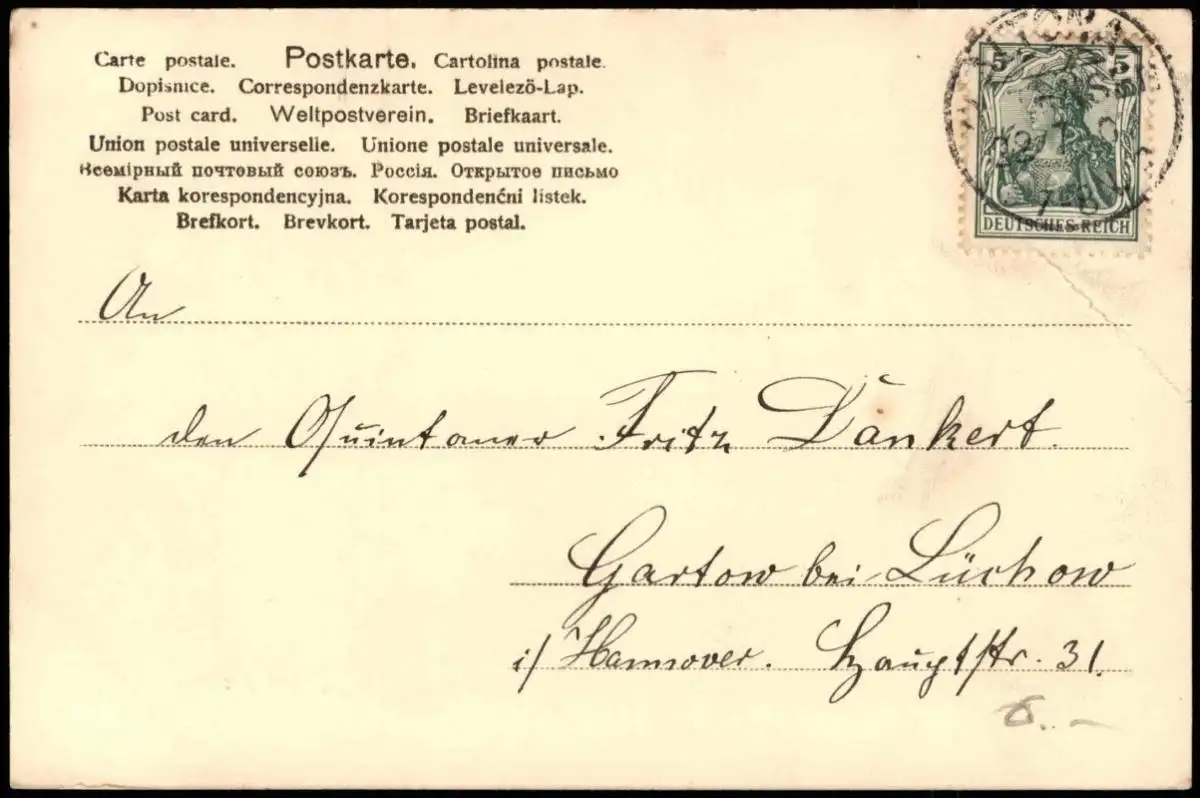 Carte postale. Postkarte. Cartolina postale.
Dopisnice. Correspondenzkarte. Levelező-Lap.
Post card. Weltpostverein. Briefkaart.
Union postale universelle. Unione postale universale.
Всемірный почтовый союзъ. Россія. Открытое письмо
Karta korespondencyjna. Korespondenčni listek.
Brefkort. Brevkort. Tarjeta postal.
5 5
DEUTSCHES REICH
An
den Quintaner Fritz Dankert.
Gartow bei Lüchow
i/ Hannover. Hauptstr. 31.